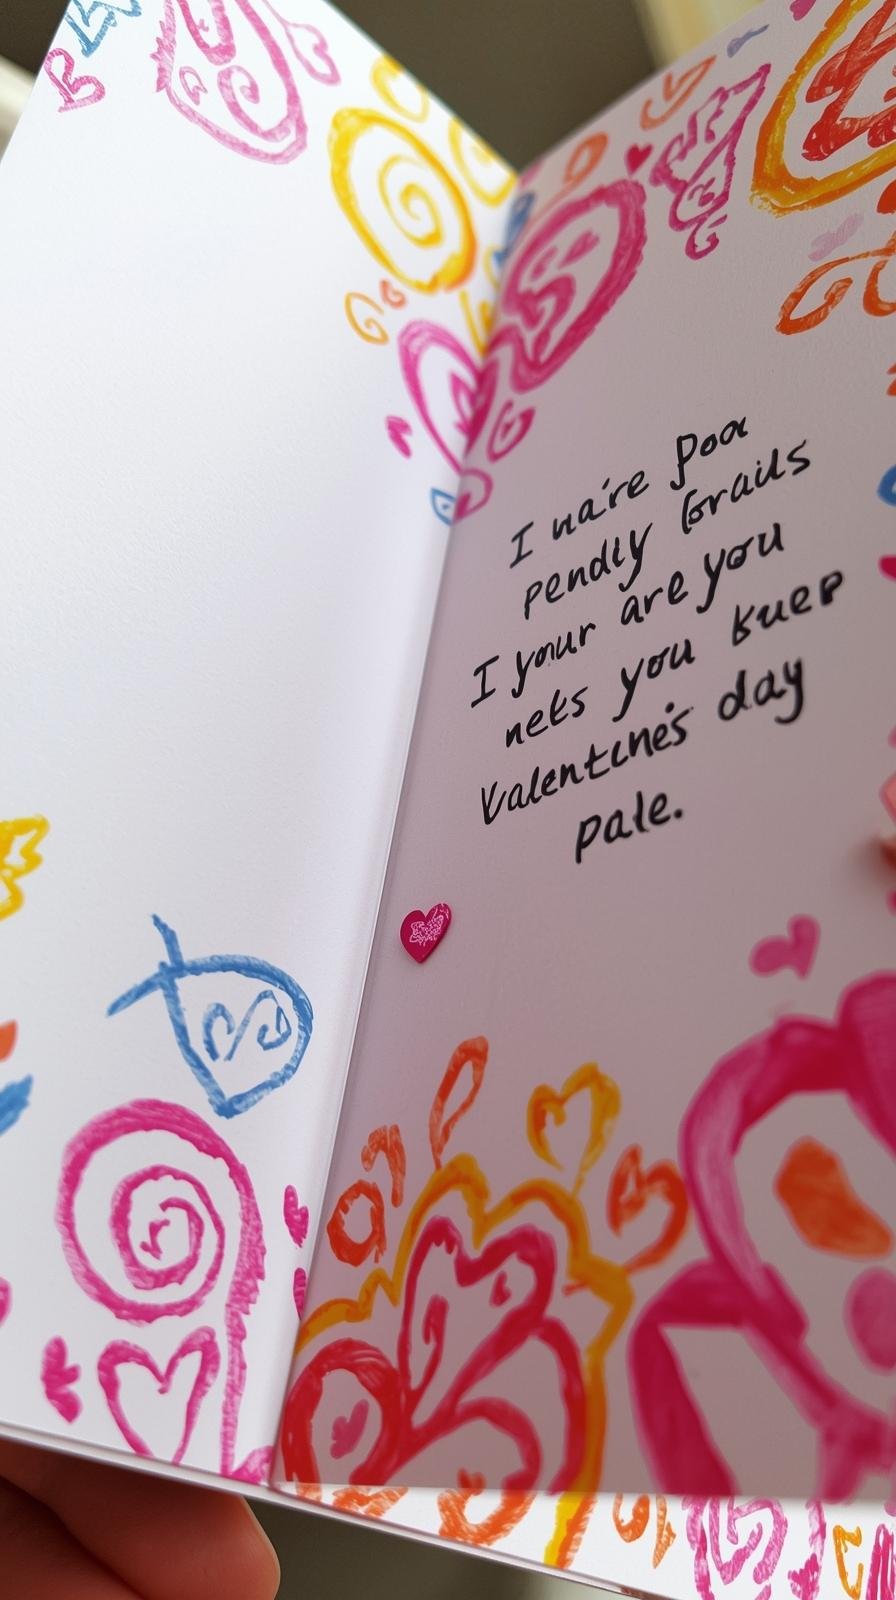 I naire poa
pendly brails
I your are you
nets you kuep
Valentine's day
pale.